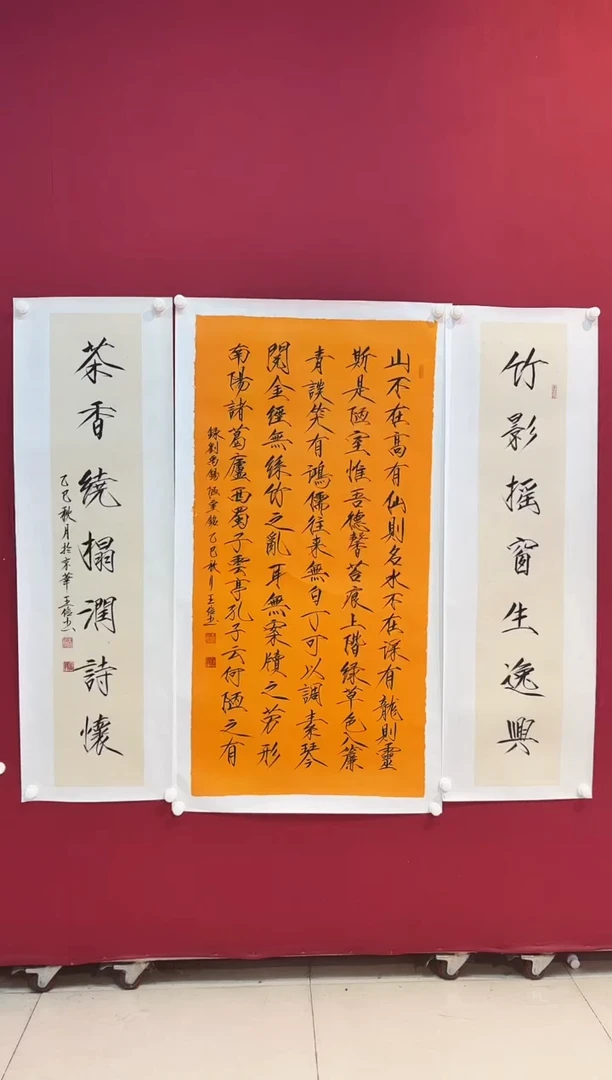 竹影摇窗生逸興
山不在高有仙則名水不在深有龍則靈
斯是陋室惟吾德馨苔痕上階緑草色入簾
青談笑有鴻儒往来無白丁可以調素琴
閱金經無絲竹之亂耳無案牘之劳形
南陽諸葛廬西蜀子雲亭孔子云何陋之有
錄劉禹錫陋室銘 乙巳秋月王
茶香繞榻潤詩懷
乙巳秋月於京華王